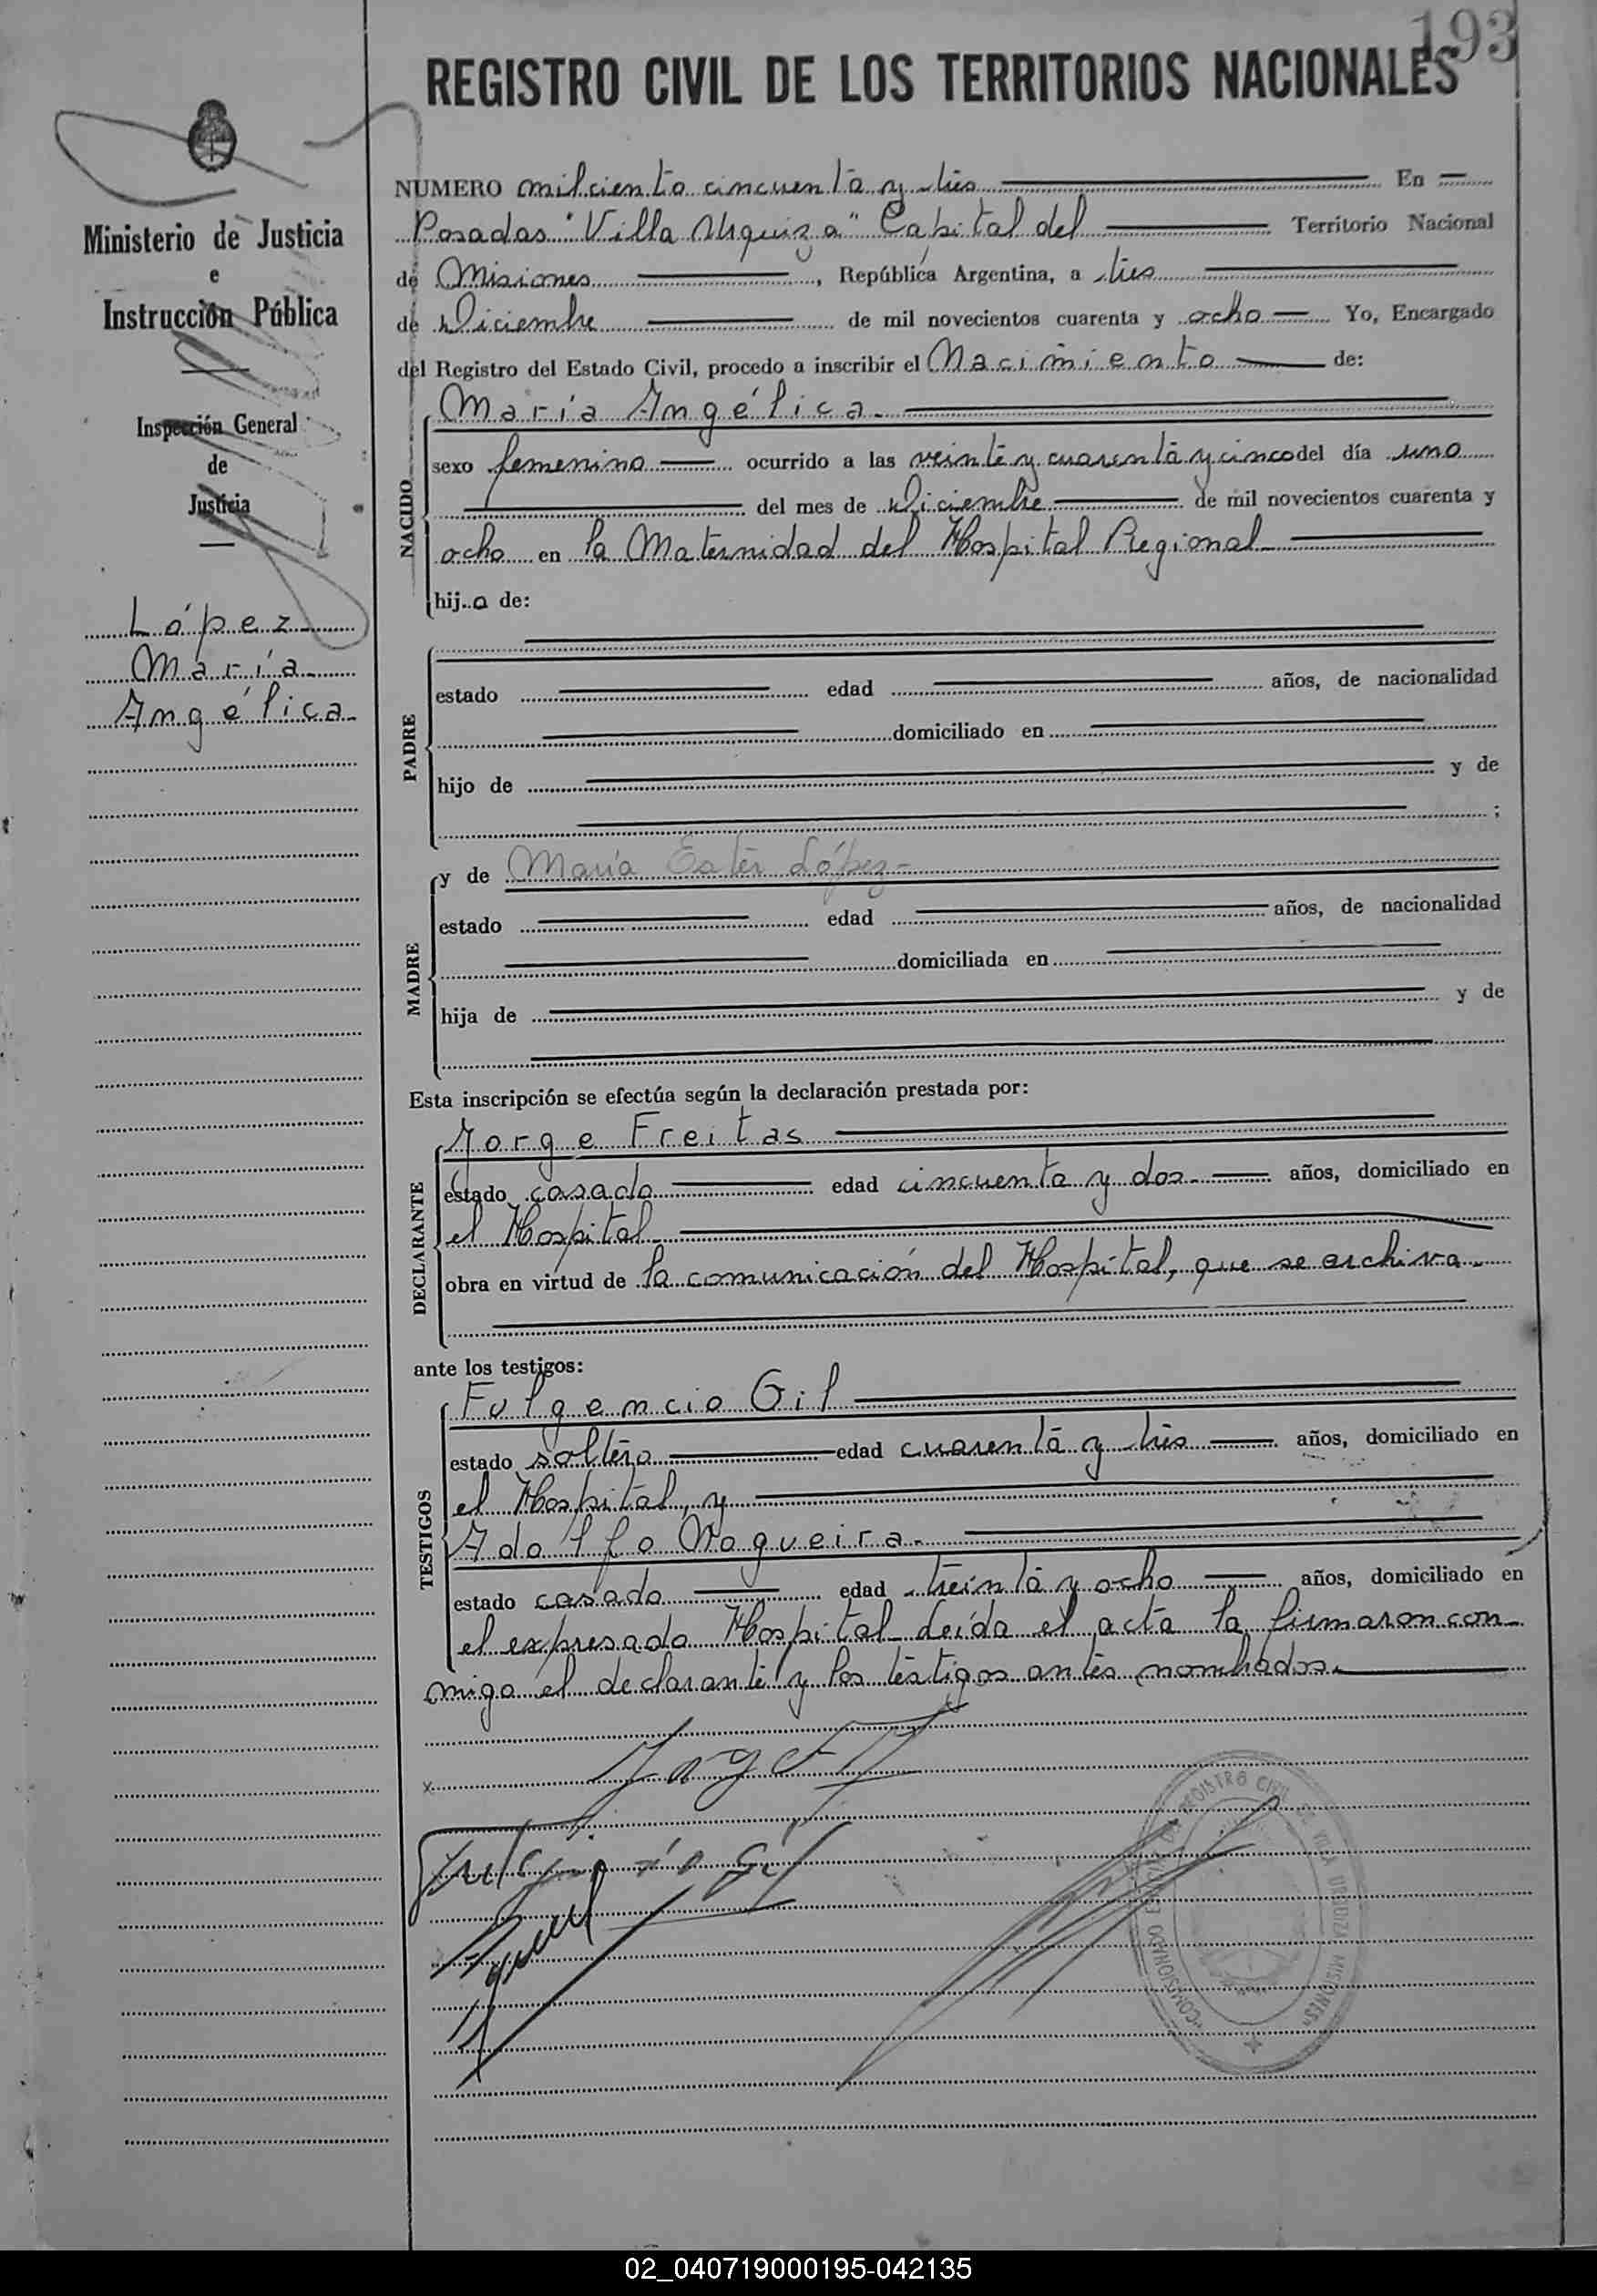 193
REGISTRO CIVIL DE LOS TERRITORIOS NACIONALES
Ministerio de Justicia
e
Instrucción Pública
Inspección General
de
Justicia
López
María
Angélica
NUMERO mil ciento cincuenta y tres En
Posadas "Villa Urquiza" Capital del Territorio Nacional
de Misiones, República Argentina, a tres
de Diciembre de mil novecientos cuarenta y ocho Yo, Encargado
del Registro del Estado Civil, procedo a inscribir el Nacimiento de:
NACIDO
María Angélica.
sexo femenino ocurrido a las veinte y cuarenta y cinco del día uno
del mes de Diciembre de mil novecientos cuarenta y
ocho en la Maternidad del Hospital Regional
hija de:
PADRE
estado edad años, de nacionalidad
domiciliado en
hijo de y de
;
MADRE
y de María Ester López-
estado edad años, de nacionalidad
domiciliada en
hija de y de
Esta inscripción se efectúa según la declaración prestada por:
DECLARANTE
Jorge Freitas
estado casado edad cincuenta y dos. años, domiciliado en
el Hospital
obra en virtud de la comunicación del Hospital, que se archiva.
ante los testigos:
TESTIGOS
Fulgencio Gil
estado soltero edad cuarenta y tres años, domiciliado en
el Hospital, y
Adolfo Nogueira.
estado casado edad treinta y ocho años, domiciliado en
el expresado Hospital. Leída el acta la firmaron con-
migo el declarante y los testigos antes nombrados.
x
REGISTRO CIVIL DE VILLA URQUIZA MISIONES
02_040719000195-042135